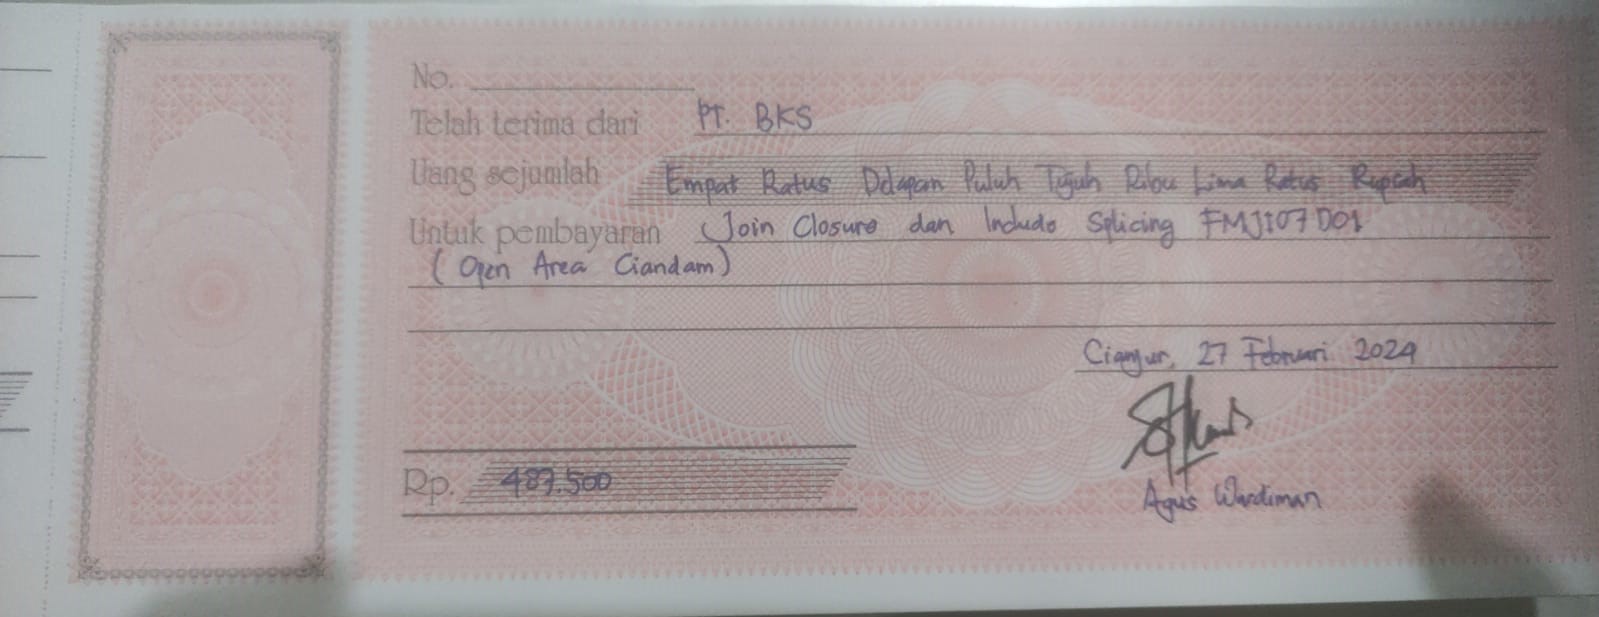 No.
Telah terima dari PT. BKS
Uang sejumlah Empat Ratus Delapan Puluh Tujuh Ribu Lima Ratus Rupiah
Untuk pembayaran Join Closure dan Include Splicing FMJI07D01
(Open Area Ciandam)
Cianjur, 27 Februari 2024
Rp. 487.500
Agus Wardiman